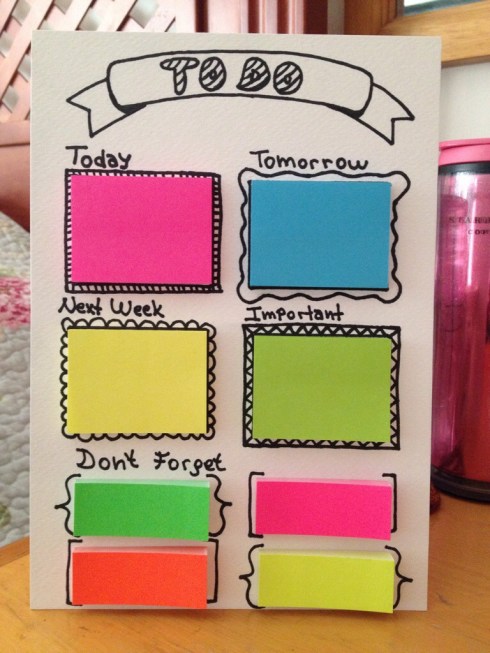 TO DO
Today
Tomorrow
Next Week
Important
Don't Forget